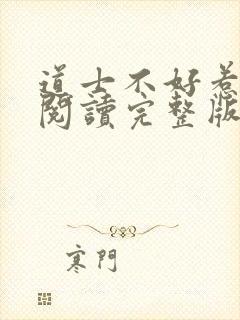 道士不好惹
閱讀完整版
寒門